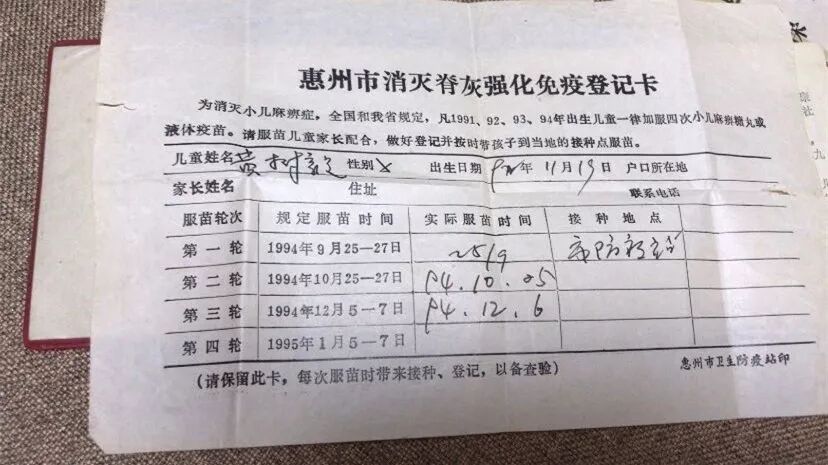 惠州市消灭脊灰强化免疫登记卡
为消灭小儿麻痹症，全国和我省规定，凡1991、92、93、94年出生儿童一律加服四次小儿麻痹糖丸或
液体疫苗。请服苗儿童家长配合，做好登记并按时带孩子到当地的接种点服苗。
儿童姓名 黄树 性别 女 出生日期 92年11月19日 户口所在地
家长姓名 住址 联系电话
服苗轮次 规定服苗时间 实际服苗时间 接种地点
第一轮 1994年9月25—27日 25/9 市防
第二轮 1994年10月25—27日 94.10.25
第三轮 1994年12月5—7日 94.12.6
第四轮 1995年1月5—7日
(请保留此卡，每次服苗时带来接种、登记，以备查验)
惠州市卫生防疫站印